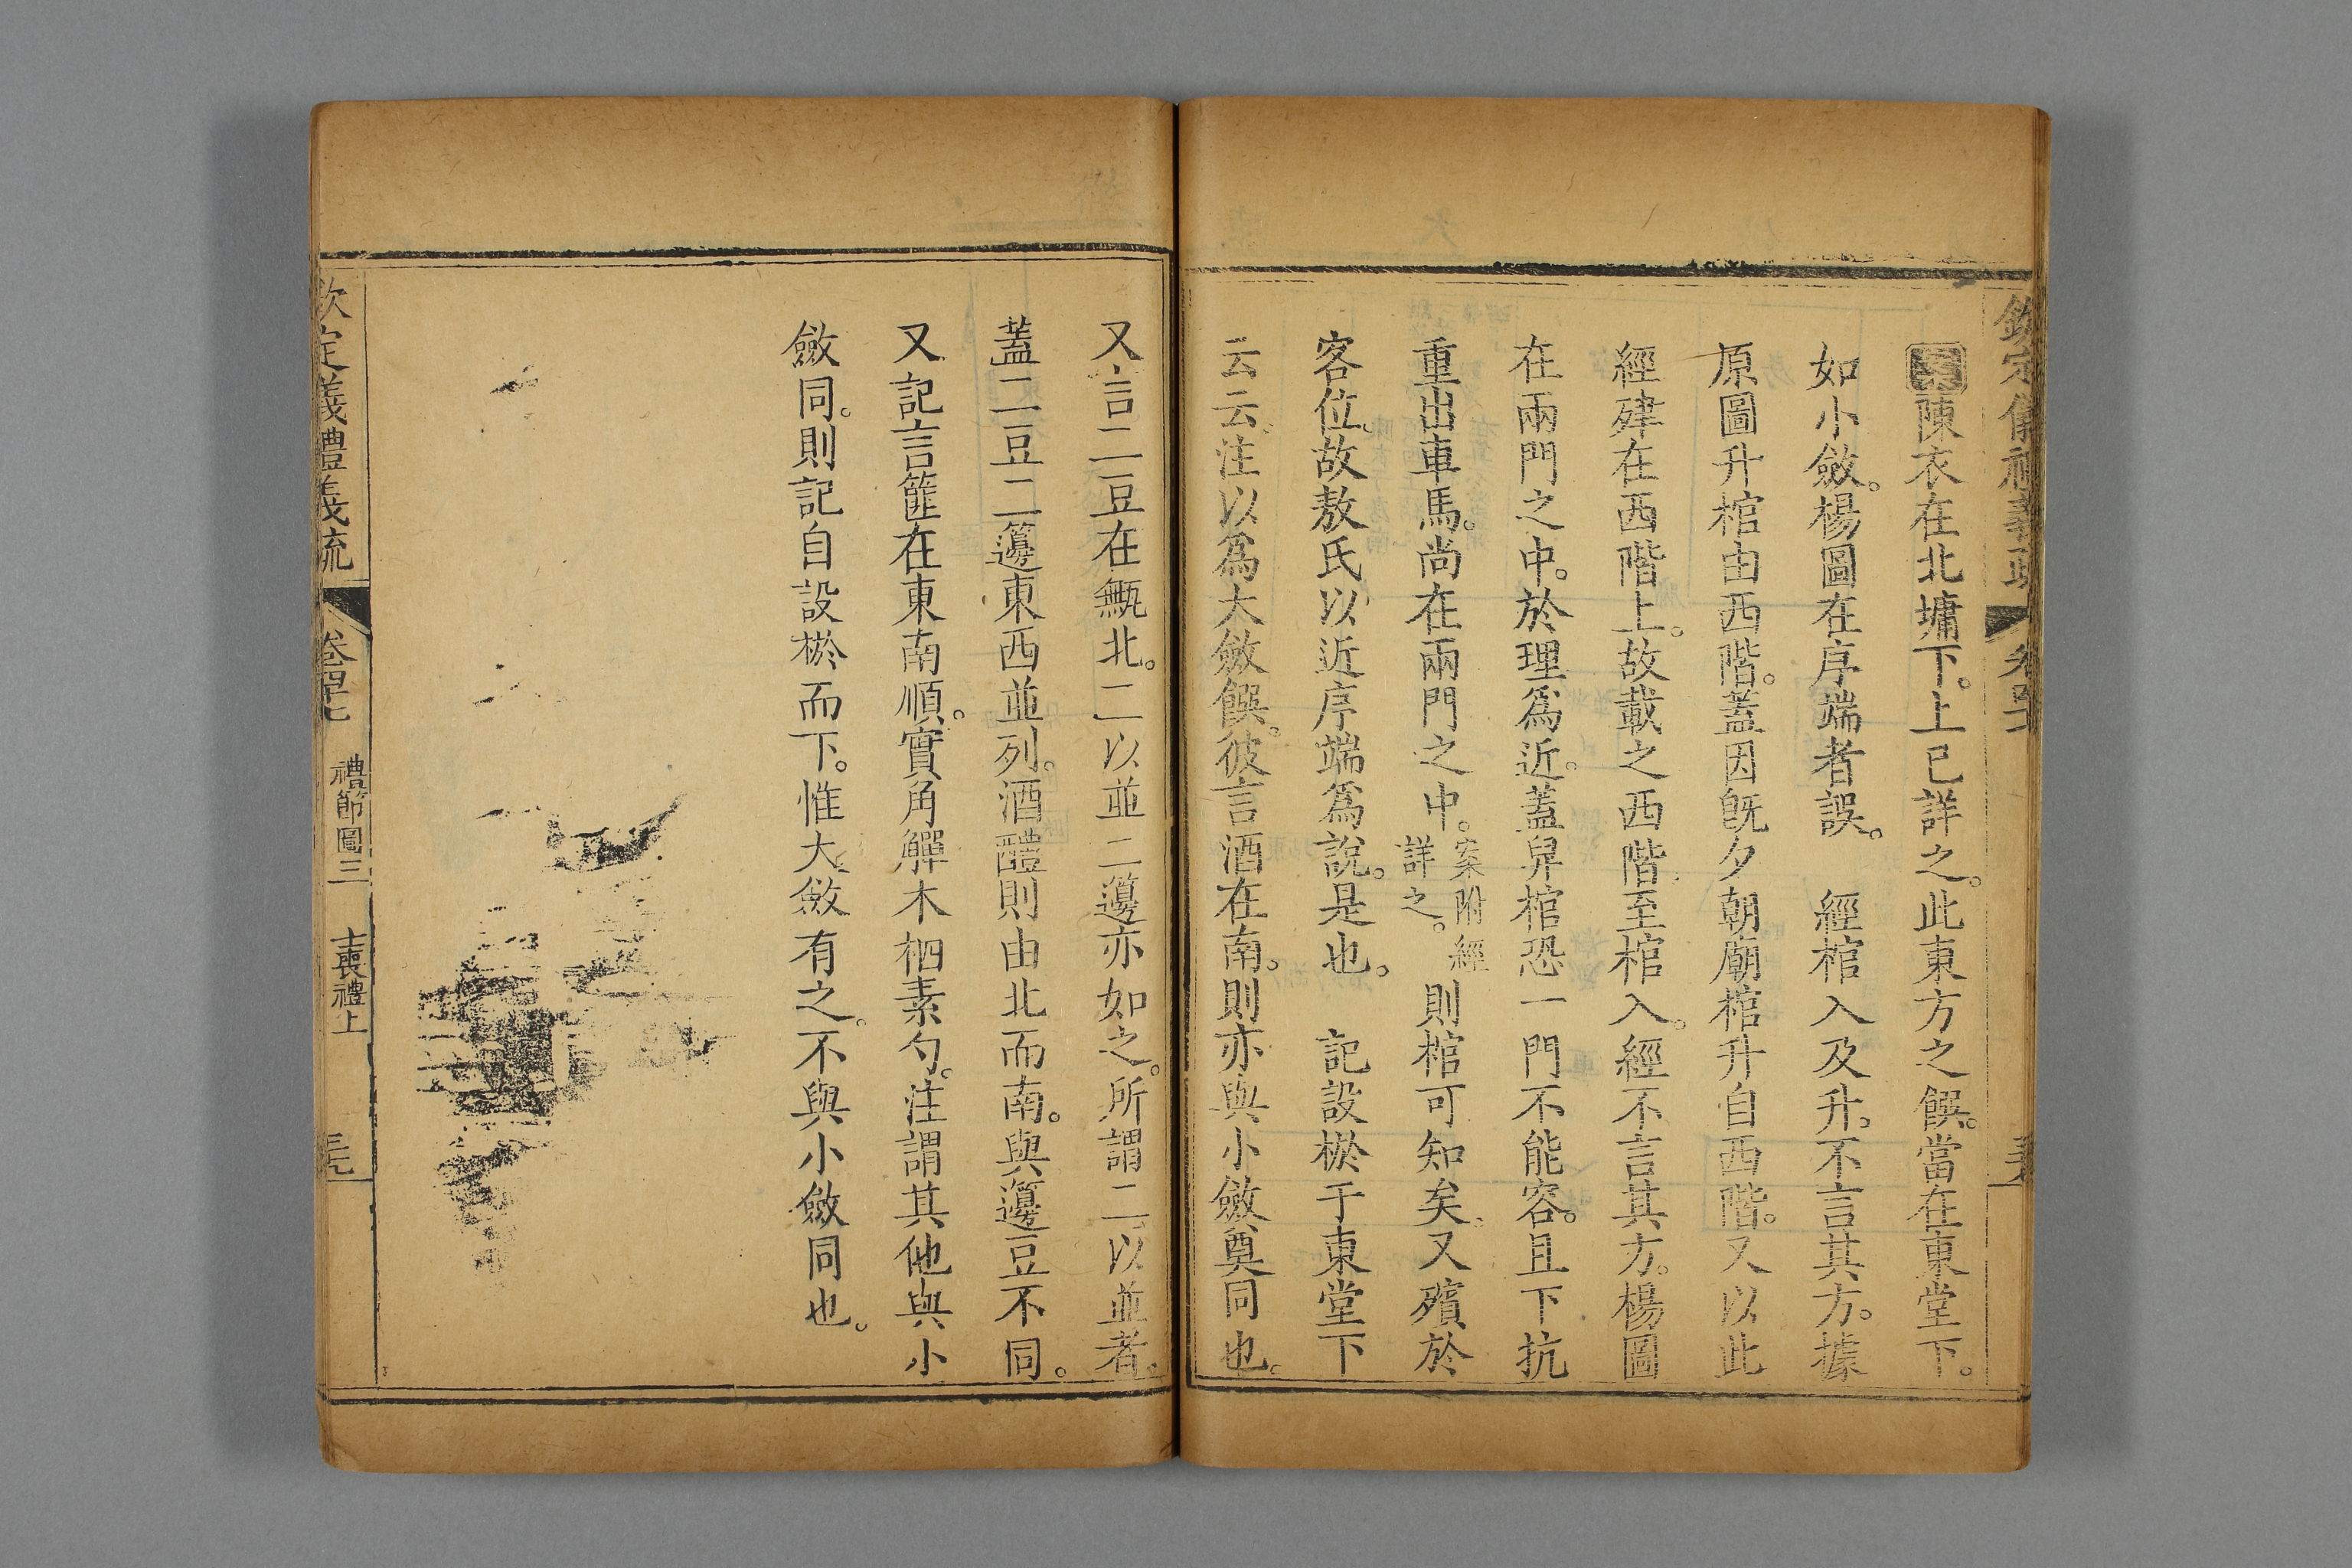 欽定儀禮義疏
案陳衣在北墉下。上已詳之。此東方之饌。當在東堂下。
如小斂。楊圖在序端者誤。　經棺入及升。不言其方。據
原圖升棺由西階。蓋因旣夕朝廟棺升自西階。又以此
經肂在西階上。故載之西階至棺入。經不言其方。楊圖
在兩門之中。於理爲近。蓋舁棺恐一門不能容。且下抗
重出車馬。尚在兩門之中。案附經詳之。則棺可知矣。又殯於
客位。故敖氏以近序端爲說。是也。　記設棜于東堂下
云云。注以爲大斂饌。彼言酒在南。則亦與小斂奠同也。
又言二豆在甒北。二以並二籩亦如之。所謂二以並者。
蓋二豆二籩東西並列。酒醴則由北而南。與籩豆不同。
又記言篚在東南順。實角觶木柶素勺。注謂其他與小
斂同。則記自設棜而下。惟大斂有之。不與小斂同也。
欽定義禮義疏
卷四十七　禮節圖三　士喪禮上　三九